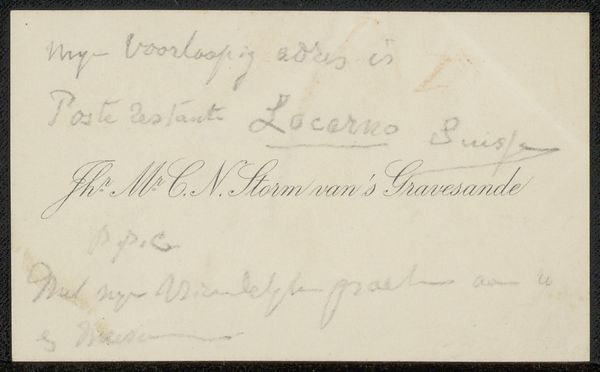 mijn voorloopig adres is
Poste restante Locarno Suisse
Jhr. Mr. C. N. Storm van 's Gravesande
p.p.c
Met mijn vriendelijke groeten aan u